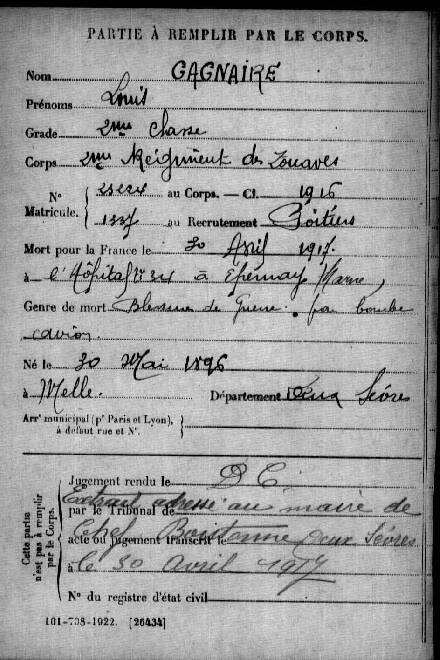 PARTIE À REMPLIR PAR LE CORPS.
Nom GAGNAIRE
Prénoms Louis
Grade 2me Classe
Corps 2me Régiment de Zouaves
N° Matricule.
au Corps. — Cl. 1916
1337 au Recrutement Poitiers
Mort pour la France le 30 Avril 1917
à l'Hôpital n° à Epernay Marne
Genre de mort Blessure de Guerre. par bombe
avion.
Né le 30 Mai 1896
à Melle. Département Deux Sèvres
Arrt municipal (pr Paris et Lyon),
à défaut rue et N°.
Cette partie n'est pas à remplir par le Corps.
Jugement rendu le D C
Extrait adressé au maire de
par le Tribunal de
Chef Boutonne Deux Sèvres
acte ou jugement transcrit le
à le 30 Avril 1917
N° du registre d'état civil
101-708-1922. [26434]